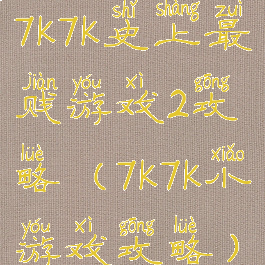 shǐ shàng zuì
7K7K史上最
jiàn yóu xì gōng
贱游戏2攻
lüè xiǎo
略（7K7K小
yóu xì gōng lüè
游戏攻略）